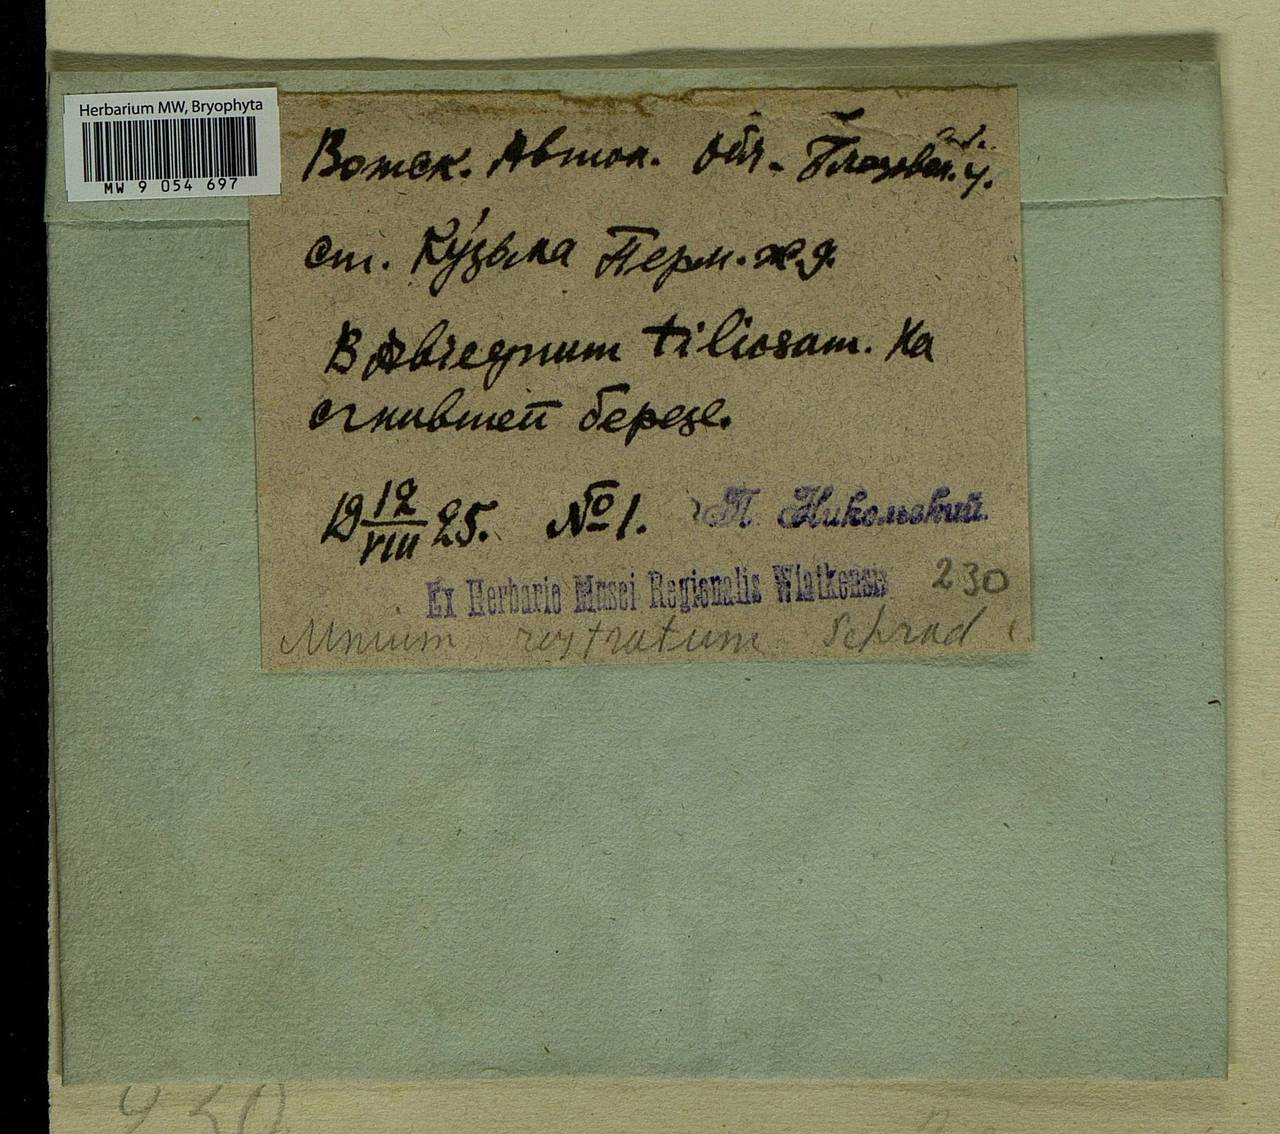 Herbarium MW, Bryophyta
MW 9 054 697
Вотск. Автон. обл. Глазовск. у.
ст. Ку́зьма Перм. ж.д.
В Abiegnum tiliosam. На
сгнившей березе.
19 12/VIII 25. № 1. П. Никольский
Ex Herbario Musei Regionalis Wiatkensis 230
Mnium rostratum Schrad